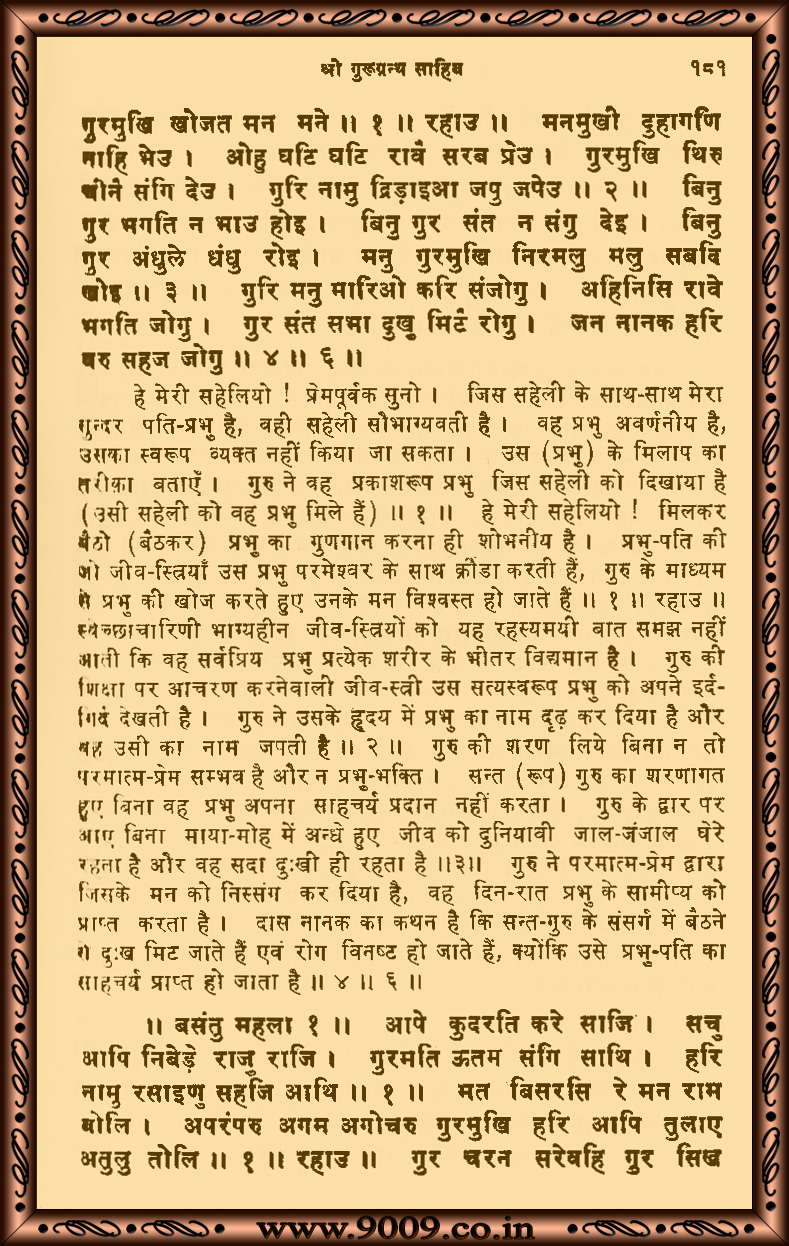 श्री गुरूग्रन्थ साहिब १८१
गुरमुखि खोजत मन मने ।। १ ।। रहाउ ।। मनमुखी दुहागणि
नाहि भेउ । ओहु घटि घटि रावै सरब प्रेउ । गुरमुखि थिरु
चीनै संगि देउ । गुरि नामु द्रिड़ाइआ जपु जपेउ ।। २ ।। बिनु
गुर भगति न भाउ होइ । बिनु गुर संत न संगु देइ । बिनु
गुर अंधुले धंधु रोइ । मनु गुरमुखि निरमलु मलु सबदि
खोइ ।। ३ ।। गुरि मनु मारिओ करि संजोगु । अहिनिसि रावे
भगति जोगु । गुर संत सभा दुखु मिटै रोगु । जन नानक हरि
वरु सहज जोगु ।। ४ ।। ६ ।।
हे मेरी सहेलियो ! प्रेमपूर्वक सुनो । जिस सहेली के साथ-साथ मेरा
सुन्दर पति-प्रभु है, वही सहेली सौभाग्यवती है । वह प्रभु अवर्णनीय है,
उसका स्वरूप व्यक्त नहीं किया जा सकता । उस (प्रभु) के मिलाप का
तरीक़ा बताएँ । गुरु ने वह प्रकाशरूप प्रभु जिस सहेली को दिखाया है
(उसी सहेली को वह प्रभु मिले हैं) ।। १ ।। हे मेरी सहेलियो ! मिलकर
बैठो (बैठकर) प्रभु का गुणगान करना ही शोभनीय है । प्रभु-पति की
जो जीव-स्त्रियाँ उस प्रभु परमेश्वर के साथ क्रीडा करती हैं, गुरु के माध्यम
से प्रभु की खोज करते हुए उनके मन विश्वस्त हो जाते हैं ।। १ ।। रहाउ ।।
स्वेच्छाचारिणी भाग्यहीन जीव-स्त्रियों को यह रहस्यमयी बात समझ नहीं
आती कि वह सर्वप्रिय प्रभु प्रत्येक शरीर के भीतर विद्यमान है । गुरु की
शिक्षा पर आचरण करनेवाली जीव-स्त्री उस सत्यस्वरूप प्रभु को अपने इर्द-
गिर्द देखती है । गुरु ने उसके हृदय में प्रभु का नाम दृढ़ कर दिया है और
वह उसी का नाम जपती है ।। २ ।। गुरु की शरण लिये बिना न तो
परमात्म-प्रेम सम्भव है और न प्रभु-भक्ति । सन्त (रूप) गुरु का शरणागत
हुए बिना वह प्रभु अपना साहचर्य प्रदान नहीं करता । गुरु के द्वार पर
आए बिना माया-मोह में अन्धे हुए जीव को दुनियावी जाल-जंजाल घेरे
रहता है और वह सदा दुःखी ही रहता है ।।३।। गुरु ने परमात्म-प्रेम द्वारा
जिसके मन को निस्संग कर दिया है, वह दिन-रात प्रभु के सामीप्य को
प्राप्त करता है । दास नानक का कथन है कि सन्त-गुरु के संसर्ग में बैठने
से दुःख मिट जाते हैं एवं रोग विनष्ट हो जाते हैं, क्योंकि उसे प्रभु-पति का
साहचर्य प्राप्त हो जाता है ।। ४ ।। ६ ।।
।। बसंतु महला १ ।। आपे कुदरति करे साजि । सचु
आपि निबेड़े राजु राजि । गुरमति ऊतम संगि साथि । हरि
नामु रसाइणु सहजि आथि ।। १ ।। मत बिसरसि रे मन राम
बोलि । अपरंपरु अगम अगोचरु गुरमुखि हरि आपि तुलाए
अतुलु तोलि ।। १ ।। रहाउ ।। गुर चरन सरेवहि गुर सिख
www.9009.co.in